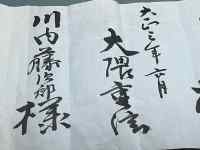 大正三年六月
大隈重信
川内藤次郎様